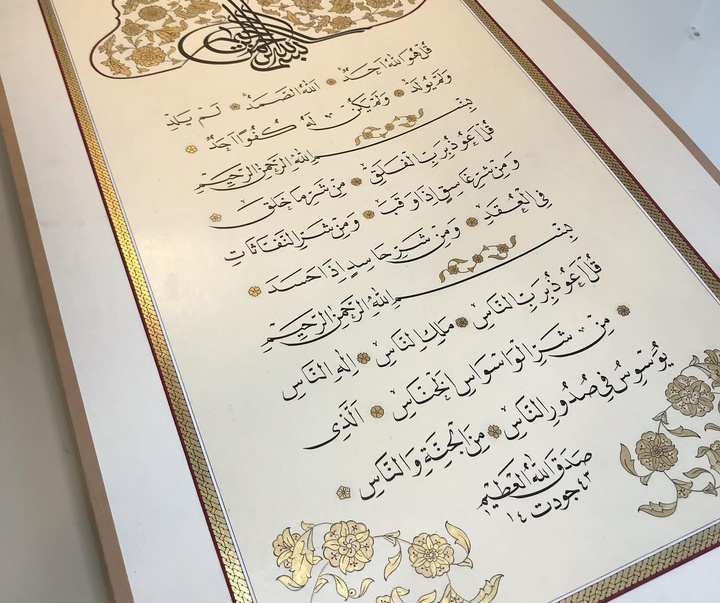 قُلْ هُوَ اللّٰهُ اَحَدٌ اَللّٰهُ الصَّمَدُ لَمْ يَلِدْ
وَلَمْ يُولَدْ وَلَمْ يَكُنْ لَهُ كُفُوًا اَحَدٌ
بِسْمِ اللّٰهِ الرَّحْمٰنِ الرَّحِيمِ
قُلْ اَعُوذُ بِرَبِّ الْفَلَقِ مِنْ شَرِّ مَا خَلَقَ
وَمِنْ شَرِّ غَاسِقٍ اِذَا وَقَبَ وَمِنْ شَرِّ النَّفَّاثَاتِ
فِي الْعُقَدِ وَمِنْ شَرِّ حَاسِدٍ اِذَا حَسَدَ
بِسْمِ اللّٰهِ الرَّحْمٰنِ الرَّحِيمِ
قُلْ اَعُوذُ بِرَبِّ النَّاسِ مَلِكِ النَّاسِ اِلٰهِ النَّاسِ
مِنْ شَرِّ الْوَسْوَاسِ الْخَنَّاسِ اَلَّذِى
يُوَسْوِسُ فِى صُدُورِ النَّاسِ مِنَ الْجِنَّةِ وَالنَّاسِ
صَدَقَ اللّٰهُ الْعَظِيمُ
جودت ١٤٤٣